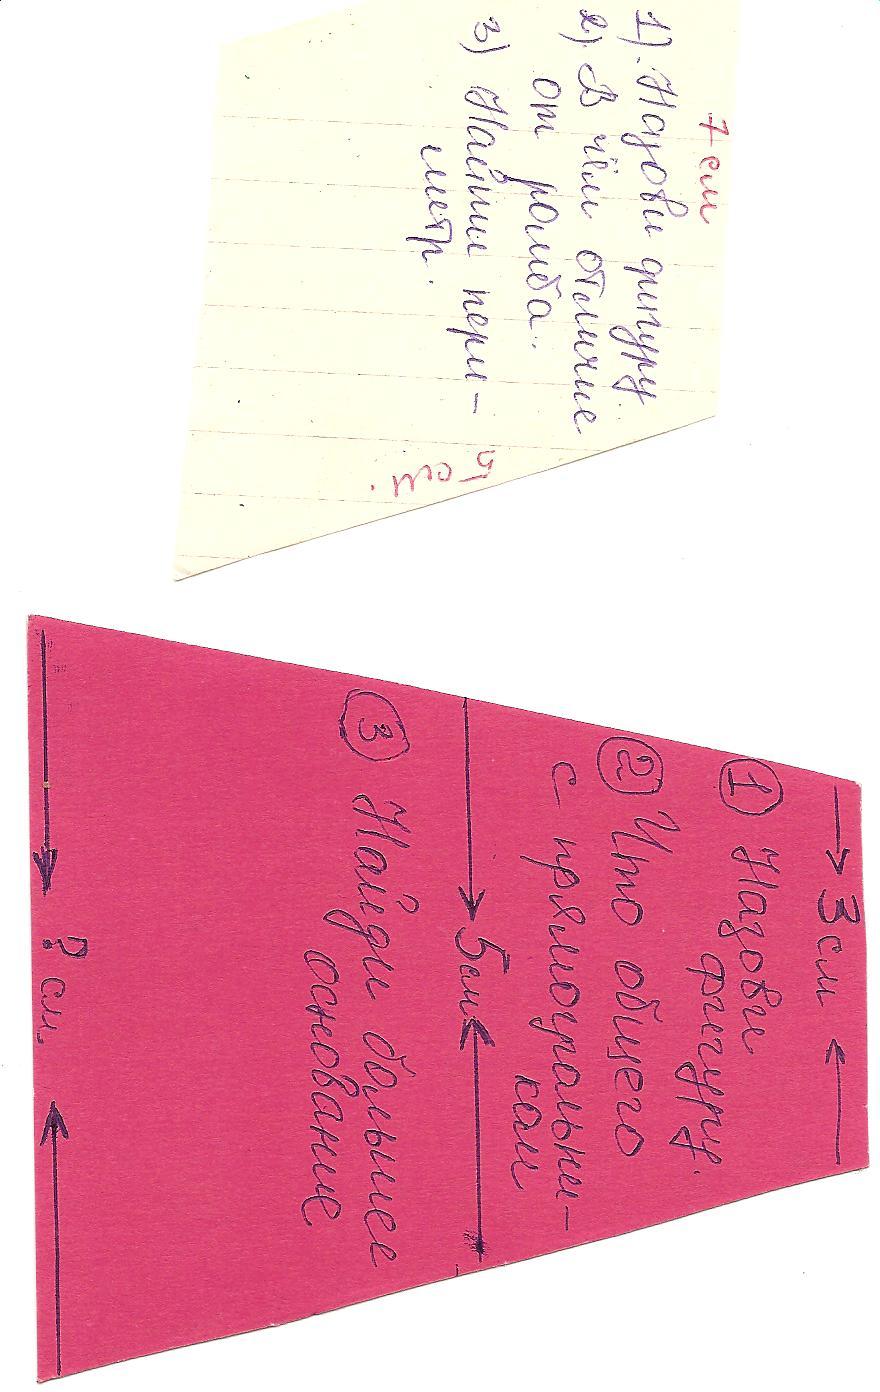 7 см
1). Назови фигуру.
2). В чём отличие
от ромба.
3) Найти пери-
метр.
5 см.
3 см
① Назови
фигуру.
② Что общего
с прямоугольни-
ком
5 см
③ Найди большее
основание
? см.